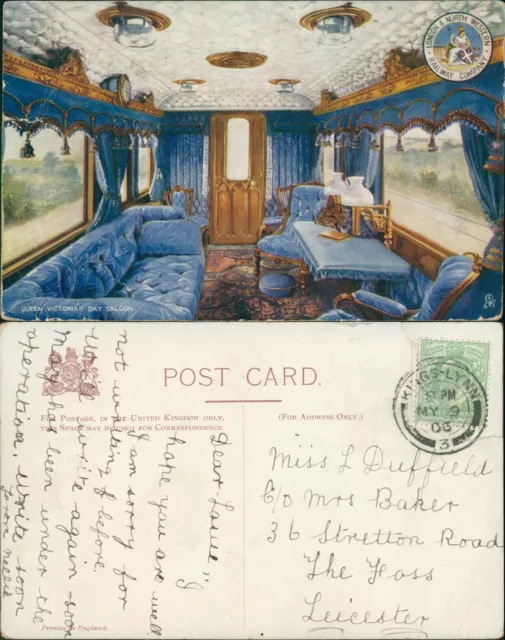 LONDON & NORTH WESTERN
RAILWAY COMPANY
QUEEN VICTORIA'S DAY SALOON.
POST CARD.
FOR POSTAGE, IN THE UNITED KINGDOM ONLY,
THIS SPACE MAY BE USED FOR CORRESPONDENCE.
(FOR ADDRESS ONLY.)
KING'S-LYNN
PM
MY 9
06
3
Miss L Duffield
C/o Mrs Baker
36 Stretton Road
The Foss
Leicester
Dear
I
hope you are well.
I am sorry for
not writing before.
Will write again soon
May has been under the
operation, Write soon
from Nellie
Printed in England.